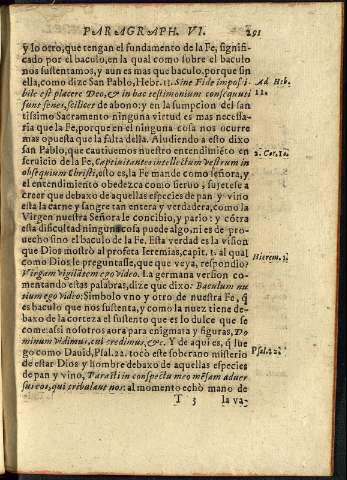 PARAGRAPH. VI. 291
y lo otro, que tengan el fundamento de la Fe, signifi
cado por el baculo, en la qual como sobre el baculo
nos sustentamos, y aun es mas que baculo, porque sin
ella, como dize San Pablo, Hebr. 11. Sine Fide impossi
bile est placere Deo, & in hac testimonium consequuti
sunt senes, scilicet de abono; y en la sumpcion del san
tissimo Sacramento ninguna virtud es mas necessa
ria que la Fe, porque en el ninguna cosa nos ocurre
mas opuesta que la falta della. Aludiendo a esto dixo
San Pablo, que cautiuemos nuestro entendimiẽto en
seruicio de la Fe, Captiuitantes intellectum vestrum in
obsequium Christi, esto es, la Fe mande como señora, y
el entendimiento obedezca como sieruo; sujetese a
creer que debaxo de aquellas especies de pan y vino
esta la carne y sangre tan entera y verdadera, como la
Virgen nuestra Señora le concibio, y pario: y cõtra
esta dificultad ninguna cosa puede algo, ni es de pro-
uecho sino el baculo de la Fe. Esta verdad es la vision
que Dios mostrò al profeta Ieremias, capit. 1. al qual
como Dios le preguntasse, que que veya, respondio?
Virgam vigilãtem ego video. La germana version co-
mentando estas palabras, dize que dixo: Baculum nu
sium ego video: Simbolo vno y otro de nuestra Fe, q̃
es baculo que nos sustenta, y como la nuez tiene de-
baxo de la corteza el sustento que es lo dulce que se
come: assi nosotros aora para enigmata y figuras, Do
minum vidimus, cui credimus, &c. Y de aqui es, q̃ lue
go como Dauid, Psal. 22. tocò este soberano misterio
de estar Dios y hombre debaxo de aquellas especies
de pan y vino, Parasti in conspectu meo mẽsam aduer
sus eos, qui tribulant nos: al momento echò mano de
T 3 la va-
Ad Heb.
11.
2. Cor. 10.
Hierem. 1.
Psal. 22.